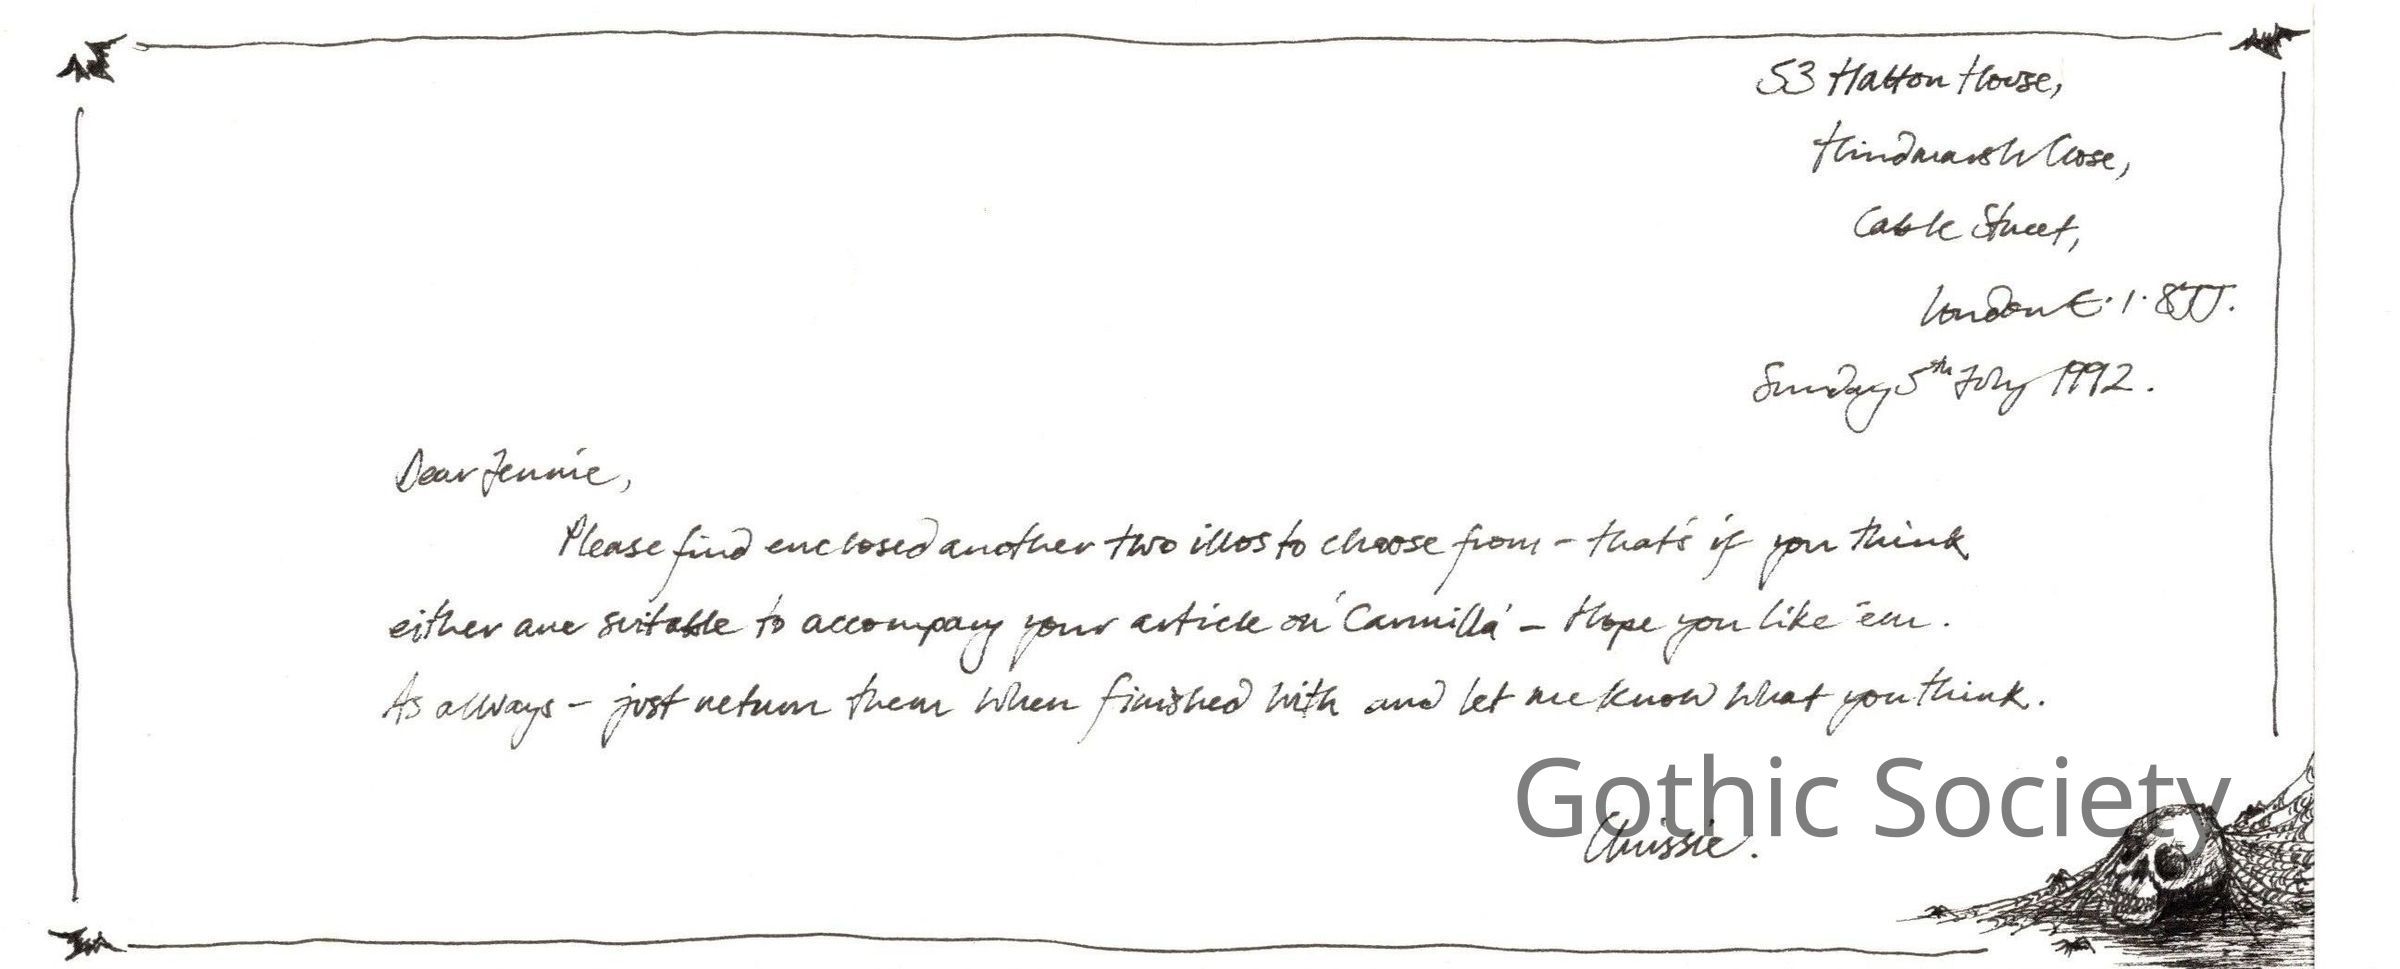 53 Hatton House,
Hindmarsh Close,
Cable Street,
London E.1. 8JJ.
Sunday 5th July 1992.
Dear Jennie,
Please find enclosed another two illos to choose from – that's if you think
either are suitable to accompany your article on 'Carmilla' – Hope you like 'em.
As always – just return them when finished with and let me know what you think.
Gothic Society
Chrissie.